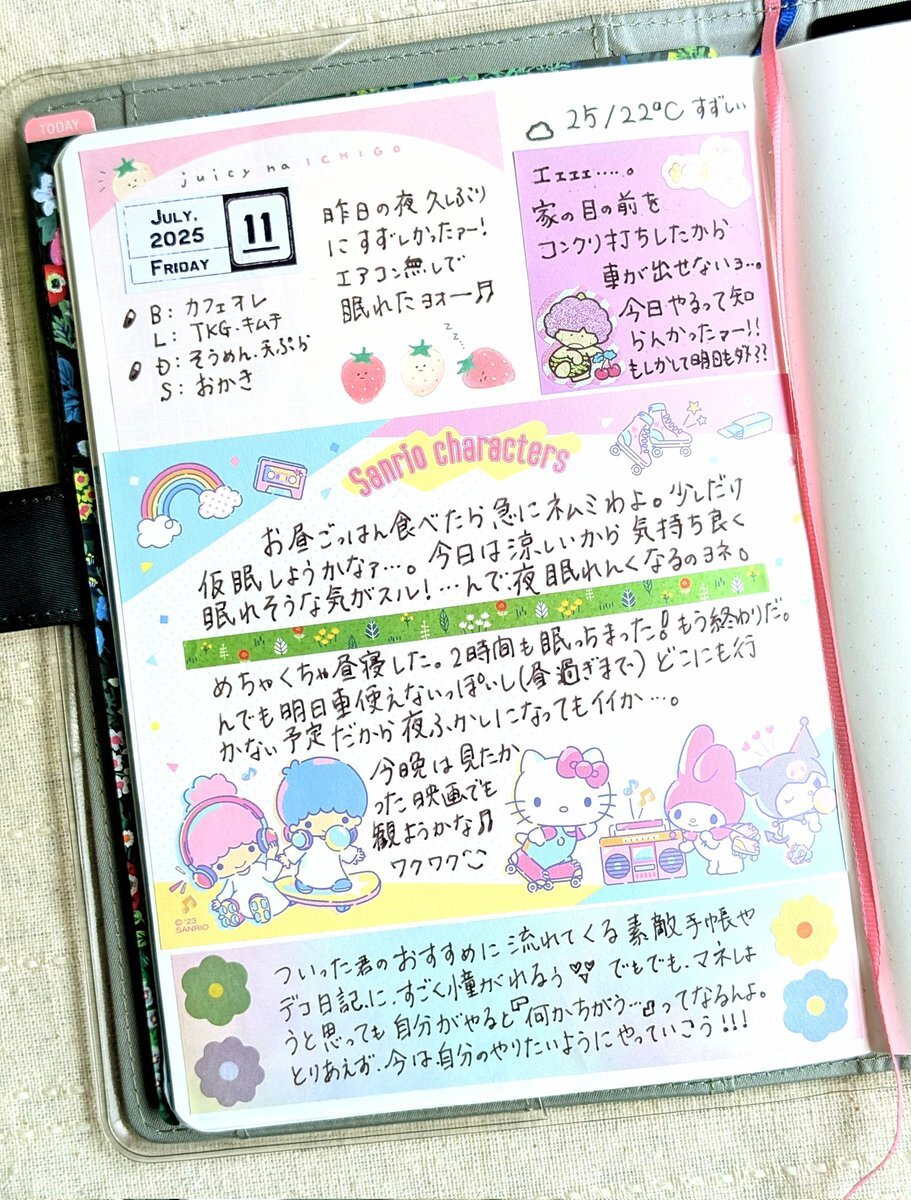 TODAY
25/22℃ すずしい
juicy na ICHIGO
JULY,
2025
FRIDAY
11
B: カフェオレ
L: TKG・キムチ
D: そうめん、天ぷら
S: おかき
昨日の夜久しぶり
にすずしかったァー!
エアコン無しで
眠れたヨォー♬
エェェェ……。
家の目の前を
コンクリ打ちしたから
車が出せないョ…。
今日やるって知
らんかったァー!!
もしかして明日もダメ??
z z z
Sanrio characters
お昼ごっはん食べたら急にネムミわよ。少しだけ
仮眠しようかなァ…。今日は涼しいから気持ち良く
眠れそうな気がスル!…んで、夜眠れんくなるのヨネ。
めちゃくちゃ昼寝した。2時間も眠っちまった!もう終わりだ。
んでも明日車使えないっぽいし(昼過ぎまで)どこにも行
かない予定だから夜ふかしになってもイイか…。
今晩は見たか
った映画でも
観ようかな♬
ワクワク
© '23
SANRIO
ついった君のおすすめに流れてくる素敵手帳や
デコ日記に、すごく憧がれるぅ♡♡ でもでも、マネしよ
うと思っても自分がやると『何かちがう…』ってなるんよ。
とりあえず、今は自分のやりたいようにやっていこう!!!